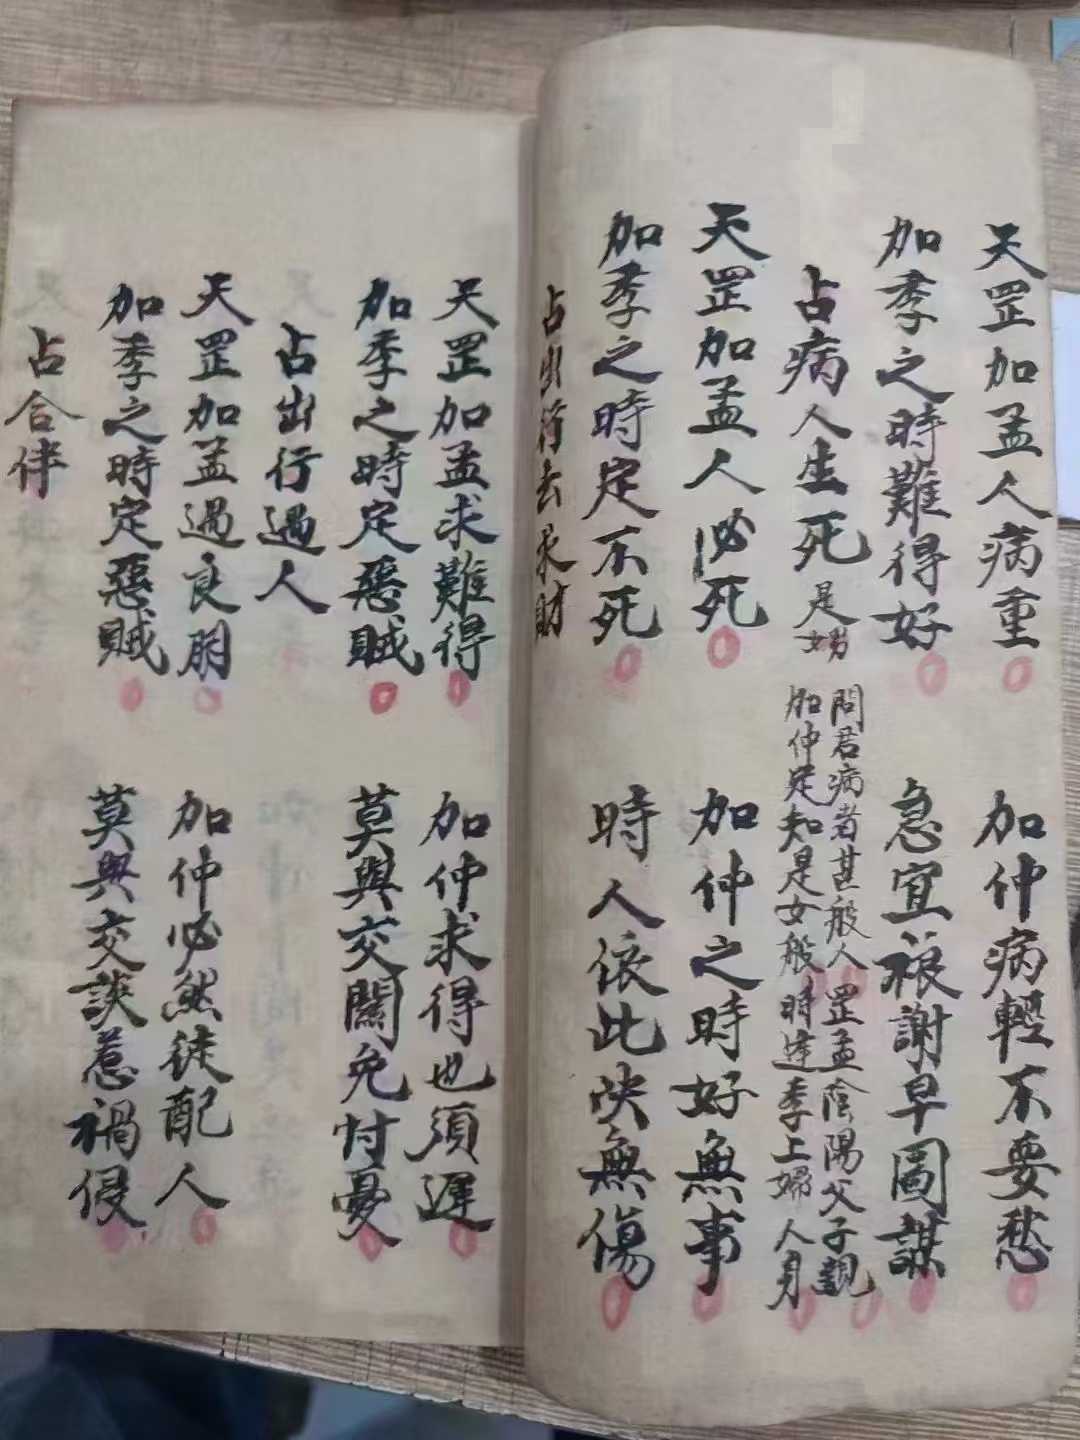 天罡加孟人病重　加仲病輕不要愁
加季之時難得好　急宜祿謝早圖謀
占病人生死　是男
問君病者甚般人　罡孟陰陽父子親
加仲定知是女般　時達季上婦人身
天罡加孟人必死　加仲之時好無事
加季之時定不死　時人依此決無傷
占出行去求財
天罡加孟求難得　加仲求得也須遲
加季之時定惡賊　莫與交關免忖憂
占出行過人
天罡加孟過良朋　加仲必然徒配人
加季之時定惡賊　莫與交談惹禍侵
占合伴